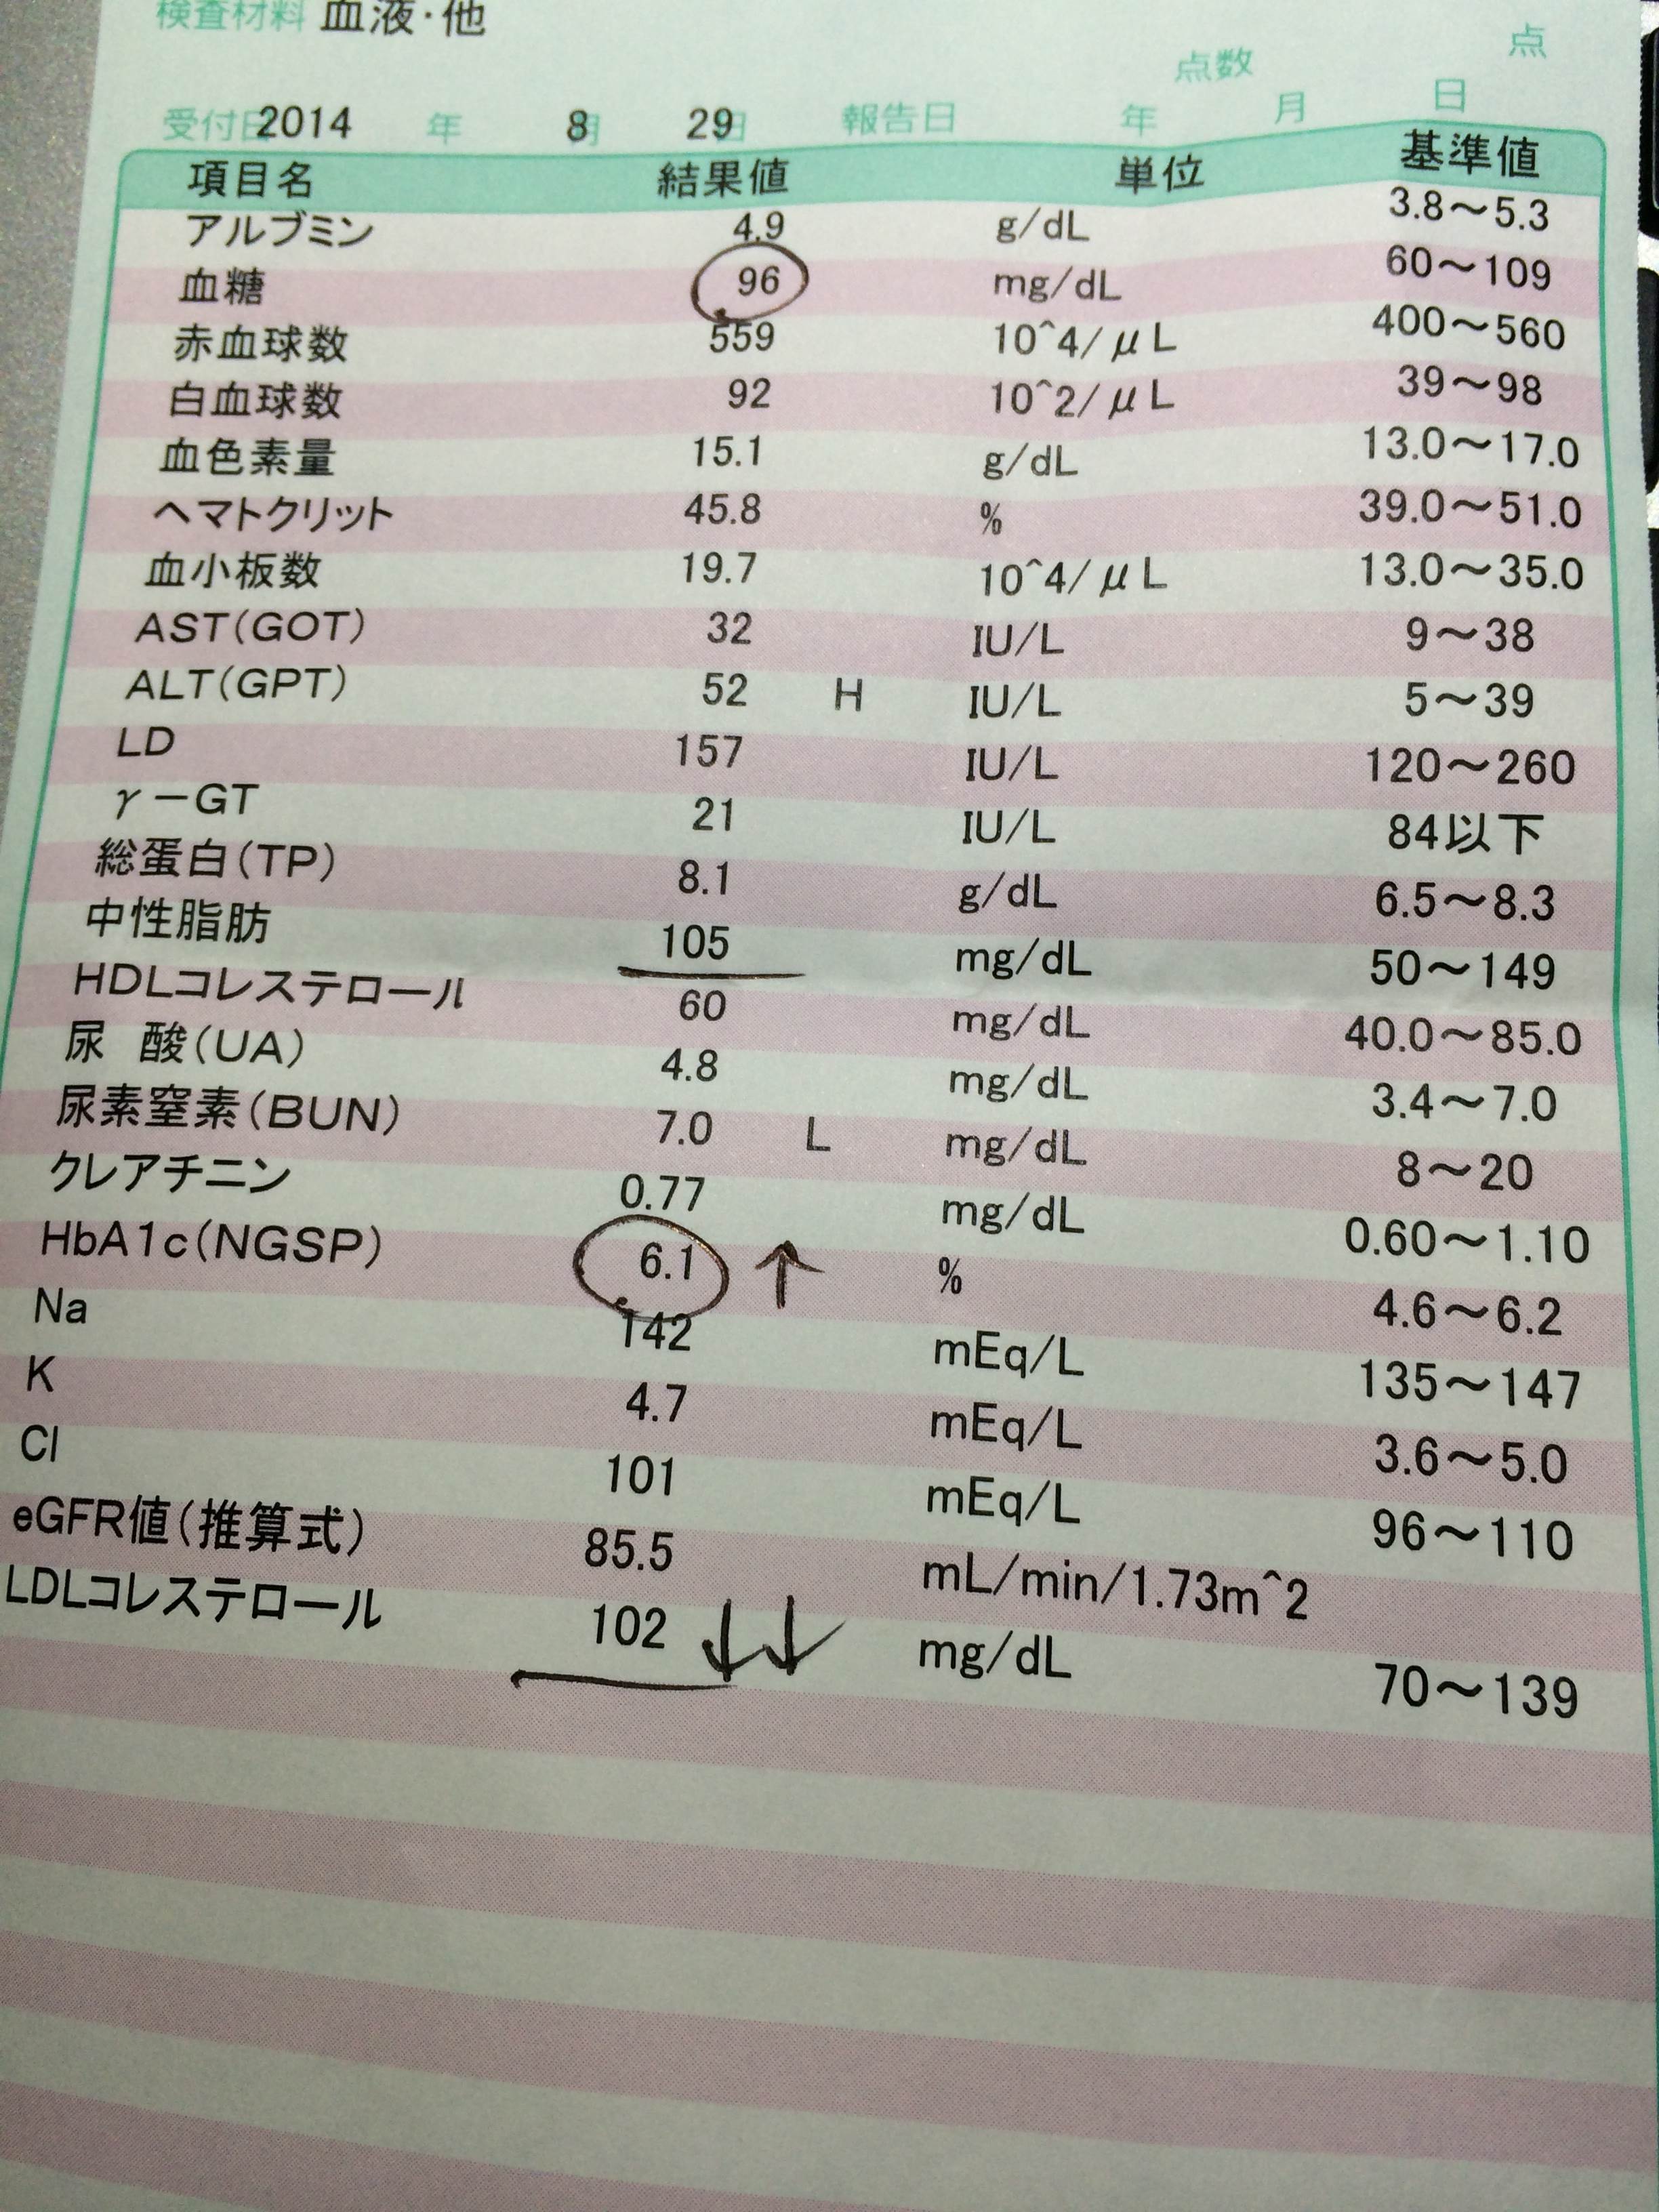 検査材料 血液・他
点数 点
受付日 2014 年 8月 29日 報告日 年 月 日
項目名 結果値 単位 基準値
アルブミン 4.9 g/dL 3.8～5.3
血糖 96 mg/dL 60～109
赤血球数 559 10^4/μL 400～560
白血球数 92 10^2/μL 39～98
血色素量 15.1 g/dL 13.0～17.0
ヘマトクリット 45.8 % 39.0～51.0
血小板数 19.7 10^4/μL 13.0～35.0
AST(GOT) 32 IU/L 9～38
ALT(GPT) 52 H IU/L 5～39
LD 157 IU/L 120～260
γ－GT 21 IU/L 84以下
総蛋白(TP) 8.1 g/dL 6.5～8.3
中性脂肪 105 mg/dL 50～149
HDLコレステロール 60 mg/dL 40.0～85.0
尿 酸(UA) 4.8 mg/dL 3.4～7.0
尿素窒素(BUN) 7.0 L mg/dL 8～20
クレアチニン 0.77 mg/dL 0.60～1.10
HbA1c(NGSP) 6.1 ↑ % 4.6～6.2
Na 142 mEq/L 135～147
K 4.7 mEq/L 3.6～5.0
Cl 101 mEq/L 96～110
eGFR値(推算式) 85.5 mL/min/1.73m^2
LDLコレステロール 102 ↓↓ mg/dL 70～139